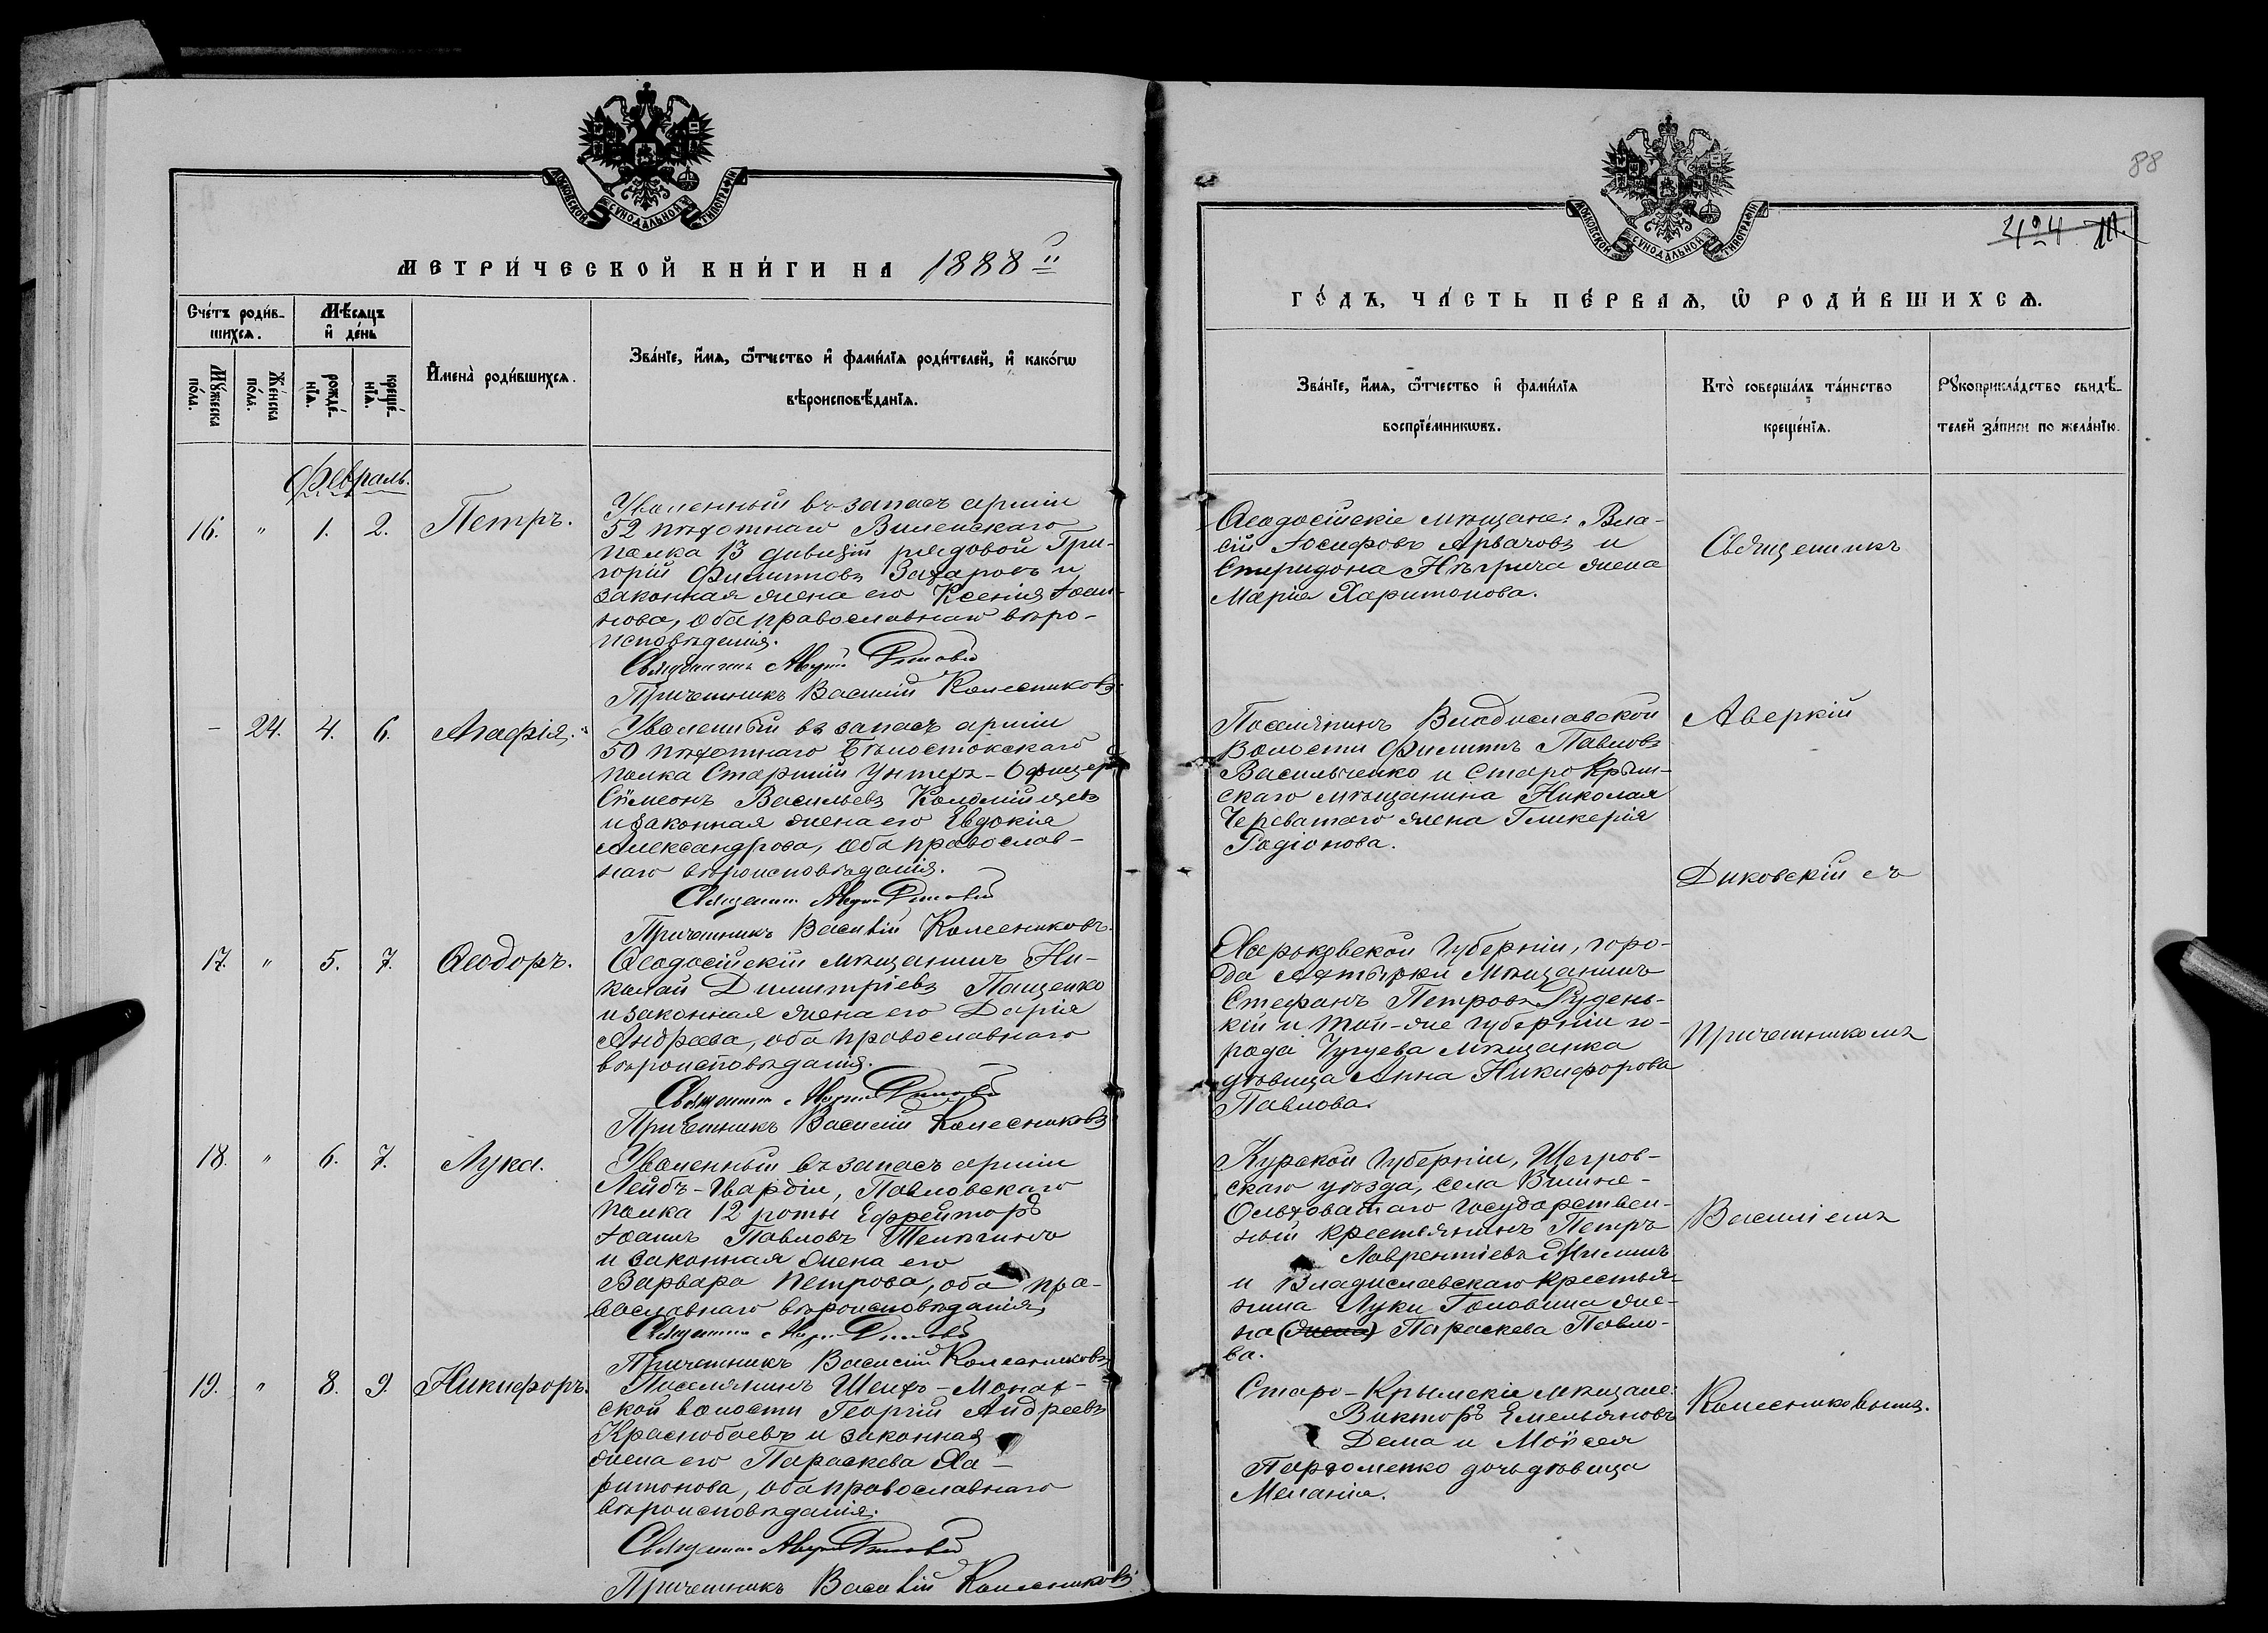 МОСКОВСКОЙ СѴНОДАЛЬНОЙ ТИПОГРАФІИ
МЕТРИ́ЧЕСКОЙ КНИ́ГИ НА 1888й
Сче́тъ роди́в-
шихся.
Мѣ́сяцъ
и҆ де́нь
Мꙋ́жеска
по́ла.
Же́нска
по́ла.
рожде́-
нїѧ.
креще́-
нїѧ.
И҆мена̀ роди́вшихсѧ.
Зва́нїе, и҆́мѧ, ѻ҆́тчество и҆ фами́лїѧ роди́телей, и҆ како́гѡ
вѣроисповѣ́данїѧ.
Февраль.
16. " 1. 2. Петръ.
Уволенный въ запасъ арміи
52 пѣхотнаго Виленскаго
полка 13 дивизіи рядовой Гри-
горій Филипповъ Захаровъ и
законная жена его Ксенія Іоан-
нова, оба православнаго вѣро-
исповѣданія.
Священникъ Аверкій Диковскій
Причетникъ Василій Колесниковъ
- 24. 4. 6. Агафія.
Уволенный въ запасъ арміи
50 пѣхотнаго Бѣлостокскаго
полка Старшій Унтеръ-Офицеръ
Сѵмеонъ Васильевъ Коломійцевъ
и законная жена его Евдокія
Александрова, оба православ-
наго вѣроисповѣданія.
Священникъ Аверкій Диковскій
Причетникъ Василій Колесниковъ.
17. " 5. 7. Ѳеодоръ.
Ѳеодосійскій мѣщанинъ Ни-
колай Димитріевъ Пащенко
и законная жена его Дарія
Андреева, оба православнаго
вѣроисповѣданія.
Священникъ Аверкій Диковскій
Причетникъ Василій Колесниковъ
18. " 6. 7. Лука.
Уволенный въ запасъ арміи
Лейбъ-Гвардіи, Павловскаго
полка 12 роты Ефрейторъ
Іоаннъ Павловъ
и законная жена его
Варвара Петрова, оба пра-
вославнаго вѣроисповѣданія,
Священникъ Аверкій Диковскій
Причетникъ Василій Колесниковъ
19. " 8. 9. Никифоръ.
Поселянинъ Шейхъ-Монах-
ской волости Георгій Андреевъ
Краснобаевъ и законная
жена его Параскева Ха-
ритонова, оба православнаго
вѣроисповѣданія.
Священникъ Аверкій Диковскій
Причетникъ Василій Колесниковъ
88
424
МОСКОВСКОЙ СѴНОДАЛЬНОЙ ТИПОГРАФІИ
ГО́ДЪ, ЧА́СТЬ ПЕ́РВАѦ, Ѡ҆ РОДИ́ВШИХСѦ.
Зва́нїе, и҆́мѧ, ѻ҆́тчество и҆ фами́лїѧ
воспрїе́мникѡвъ.
Кто̀ соверша́лъ та́инство
креще́нїѧ.
Рꙋкоприкла́дство свидѣ́-
телей за́писи по жела́нїю.
Ѳеодосійскіе мѣщане: Вла-
сій Іосифовъ Арвачовъ и
Спиридона Нѣгрича жена
Марія Харитонова.
Поселянинъ Владиславской
волости Филиппъ Павловъ
Васильченко и Старо Крым-
скаго мѣщанина Николая
Череватаго жена Гликерія
Родіонова.
Харьковской Губерніи, горо-
да Ахтырки мѣщанинъ
Стефанъ Петровъ Рудень-
кій и той-же губерніи го-
рода Чугуева мѣщанка
дѣвица Анна Никифорова
Павлова.
Курской Губерніи, Щегров-
скаго уѣзда, села Вышне-
Ольховатаго государствен-
ный крестьянинъ Петръ
Лаврентіевъ
и Владиславскаго крестья-
нина Луки Головина же-
на (жена) Параскева Павло-
ва.
Старо-Крымскіе мѣщане:
Викторъ Емельяновъ
Дема и Моѵсея
Пархоменко дочь дѣвица
Меланія.
Священникъ
Аверкій
Диковскій съ
причетникомъ
Василіемъ
Колесниковымъ.